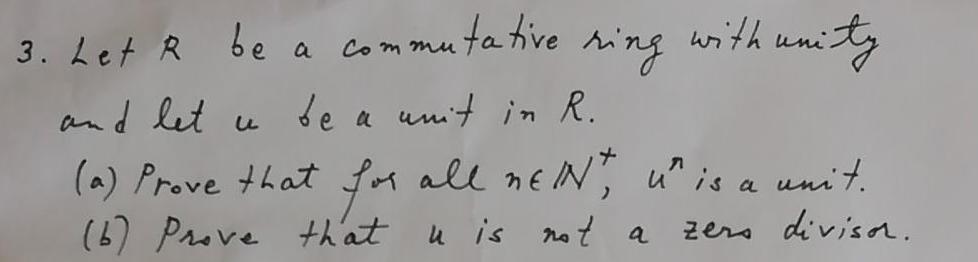 3. Let R be a commutative ring with unity
and let u be a unit in R.
(a) Prove that for all n∈ℕ⁺, uⁿ is a unit.
(b) Prove that u is not a zero divisor.